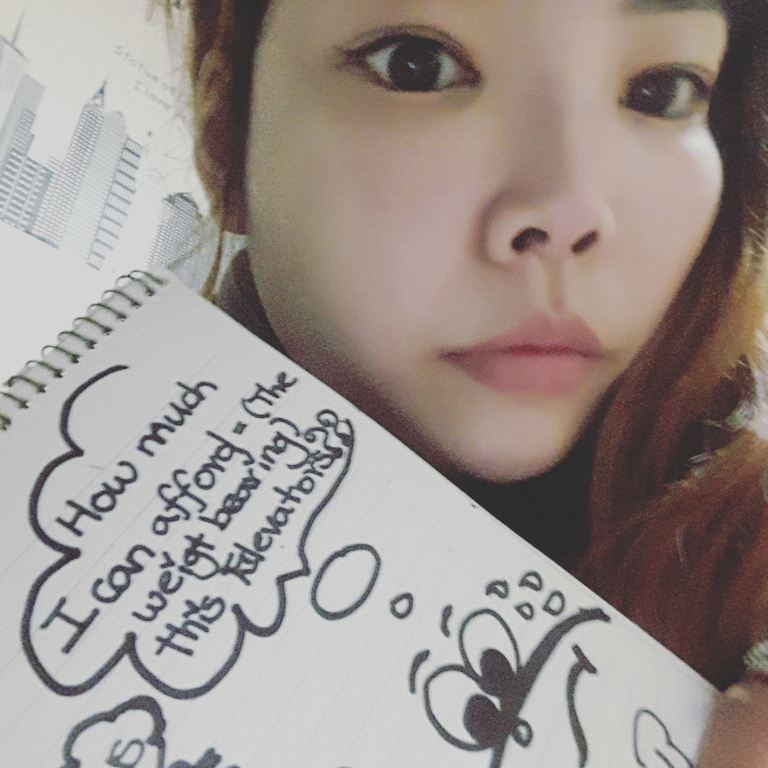 Statue of
I love
How much
I can afford = (The
weigt bearing)
this Eelevators??